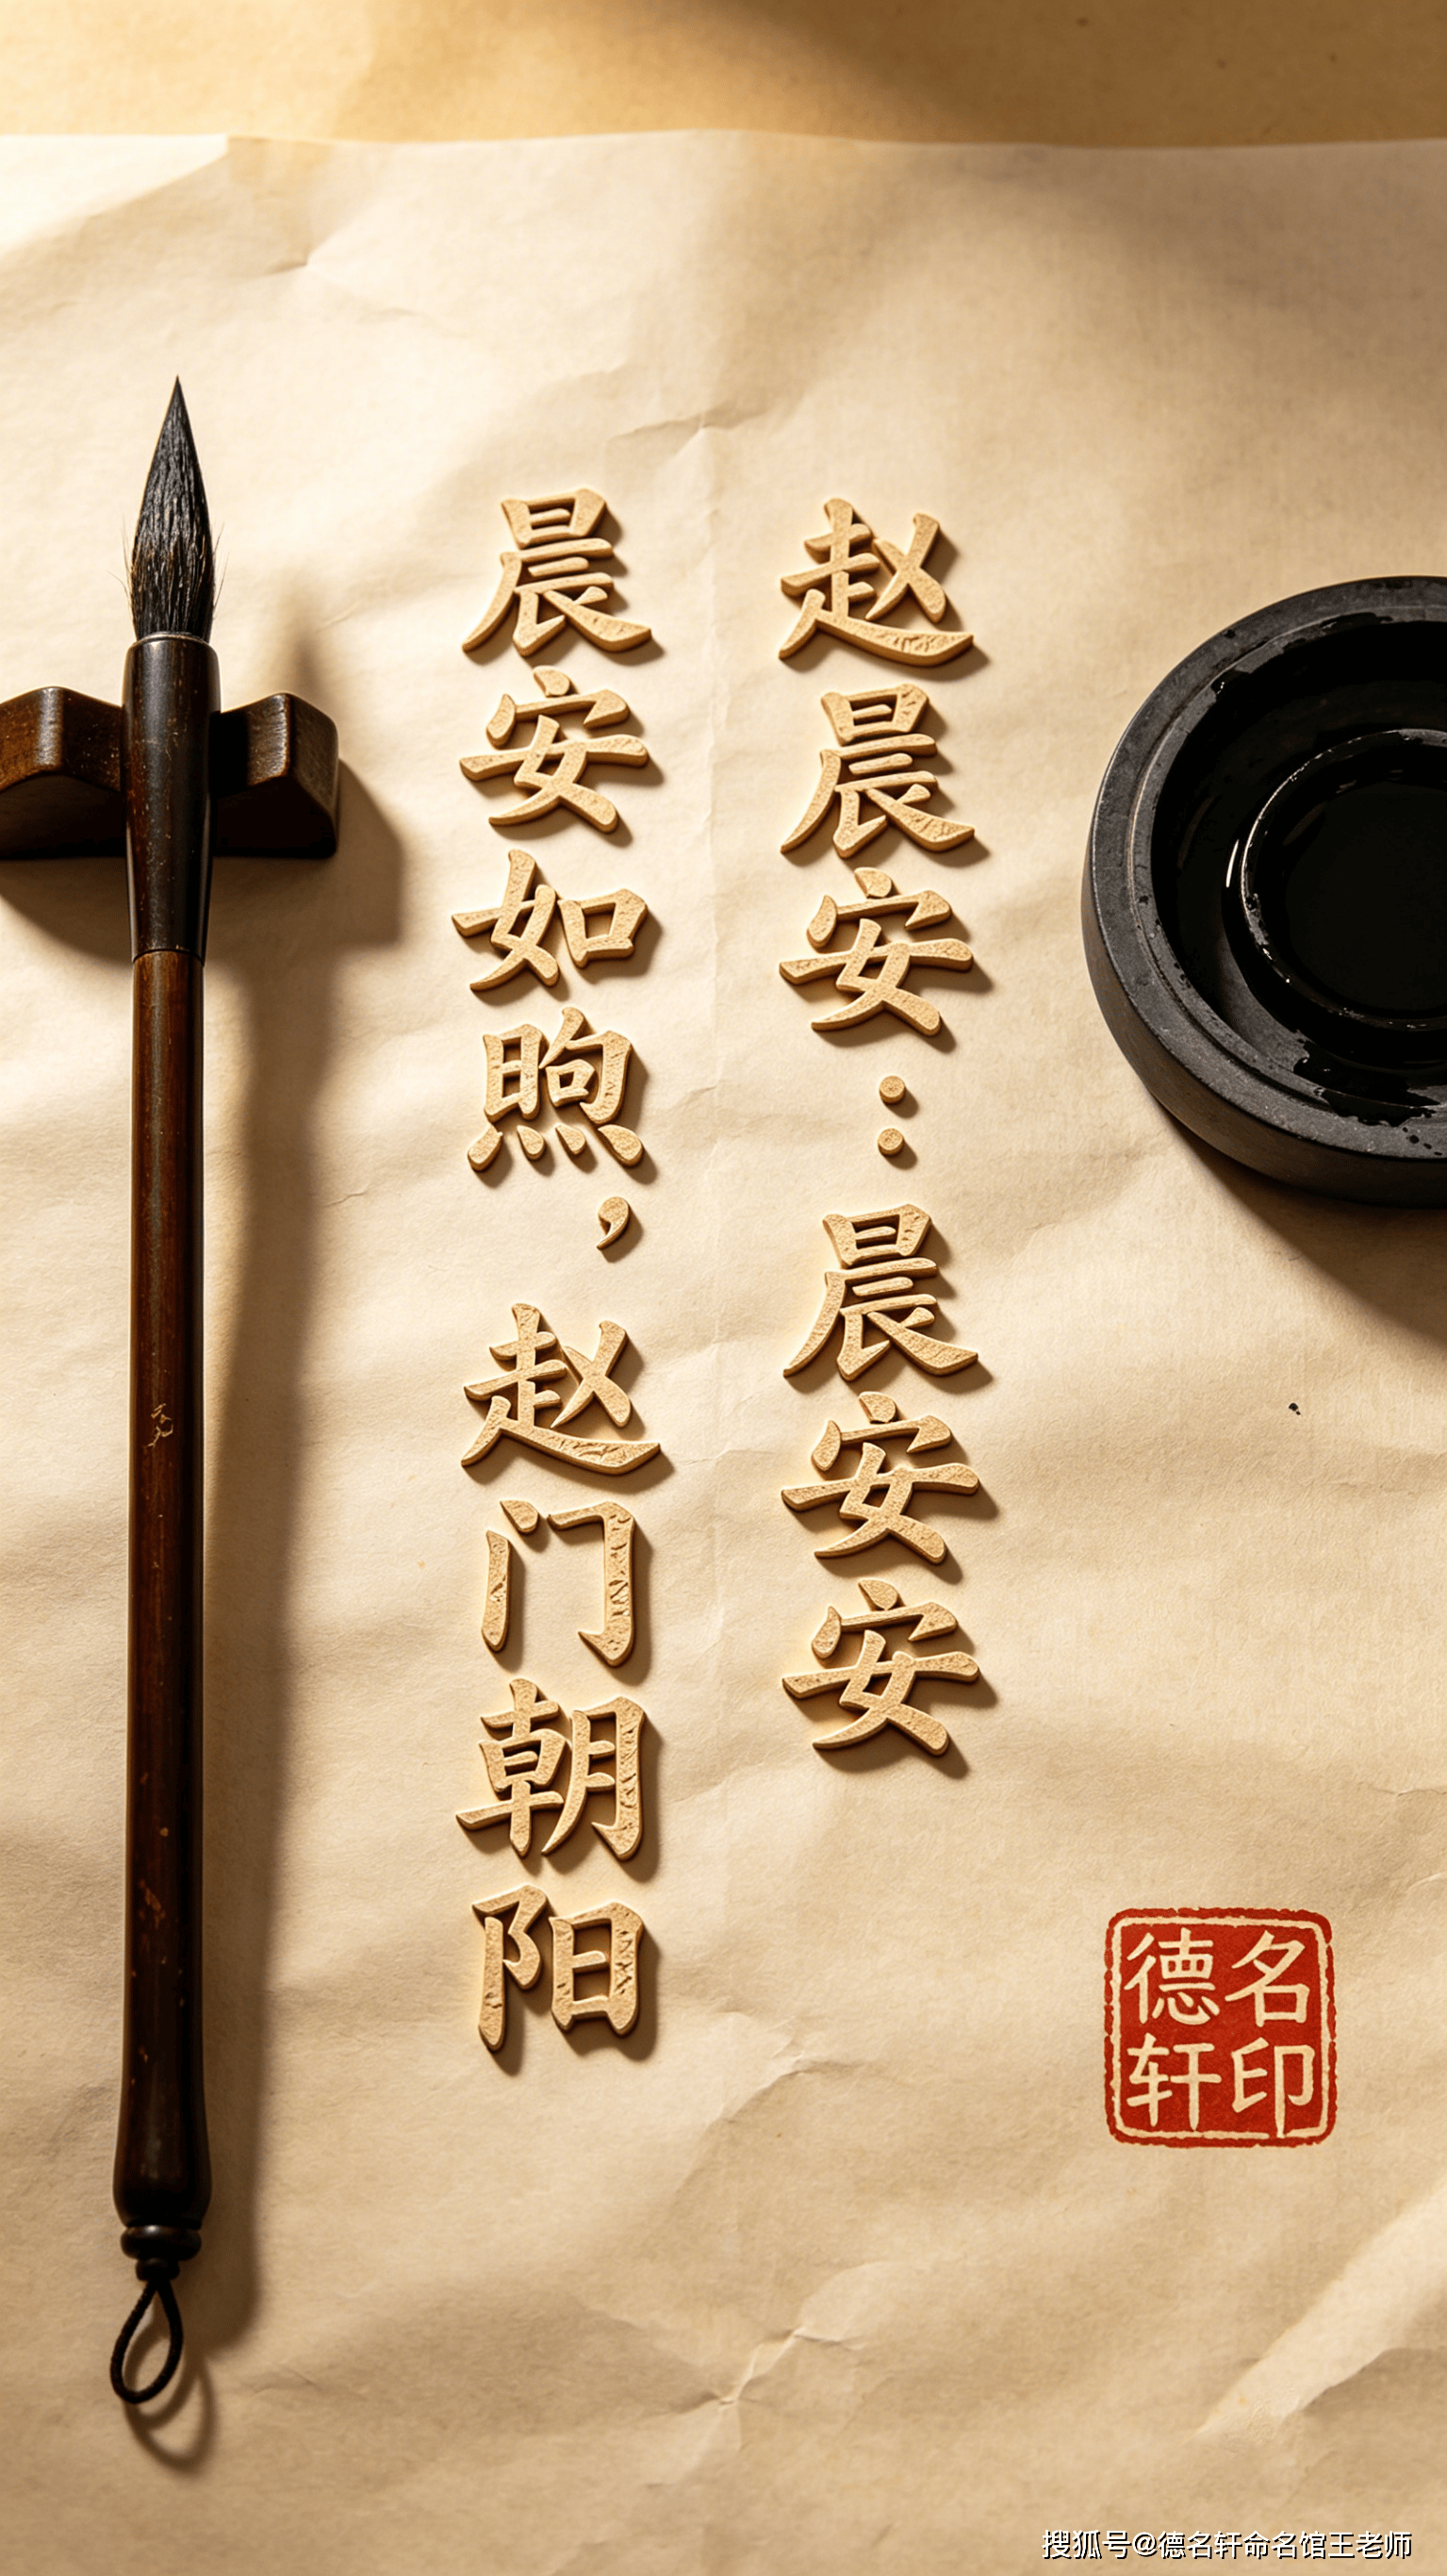 赵晨安：晨安安
晨安如煦，赵门朝阳
德名
轩印
搜狐号@德名轩命名馆王老师